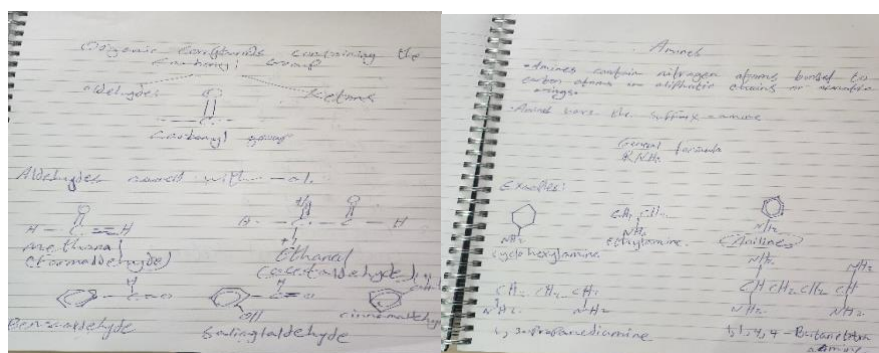 Organic Compounds containing the
Carbonyl Group
aldehydes
Ketons
O
C
Carbonyl group
Aldehydes named with -al.
O
H - C = H
methanal
(formaldehyde)
H O
H - C - C - H
H
Ethanal
(acetaldehyde)
H
C = O
H
C = O
OH
Benzaldehyde
Salicylaldehyde
cinnamaldehy
Amines
• Amines contain nitrogen atoms bonded to
carbon atoms in aliphatic chains or aromatic
rings.
• Amines have the suffix -amine
General formula
R-NH2
Examples:
NH2
Cyclohexylamine
CH3 CH2
NH2
ethylamine.
NH2
(Anilines)
CH2 CH2 CH2
NH2 NH2
1,3-Propanediamine
NH2 NH2
CH CH2 CH2 CH
NH2 NH2
1,1,4,4-Butanetetra
amine